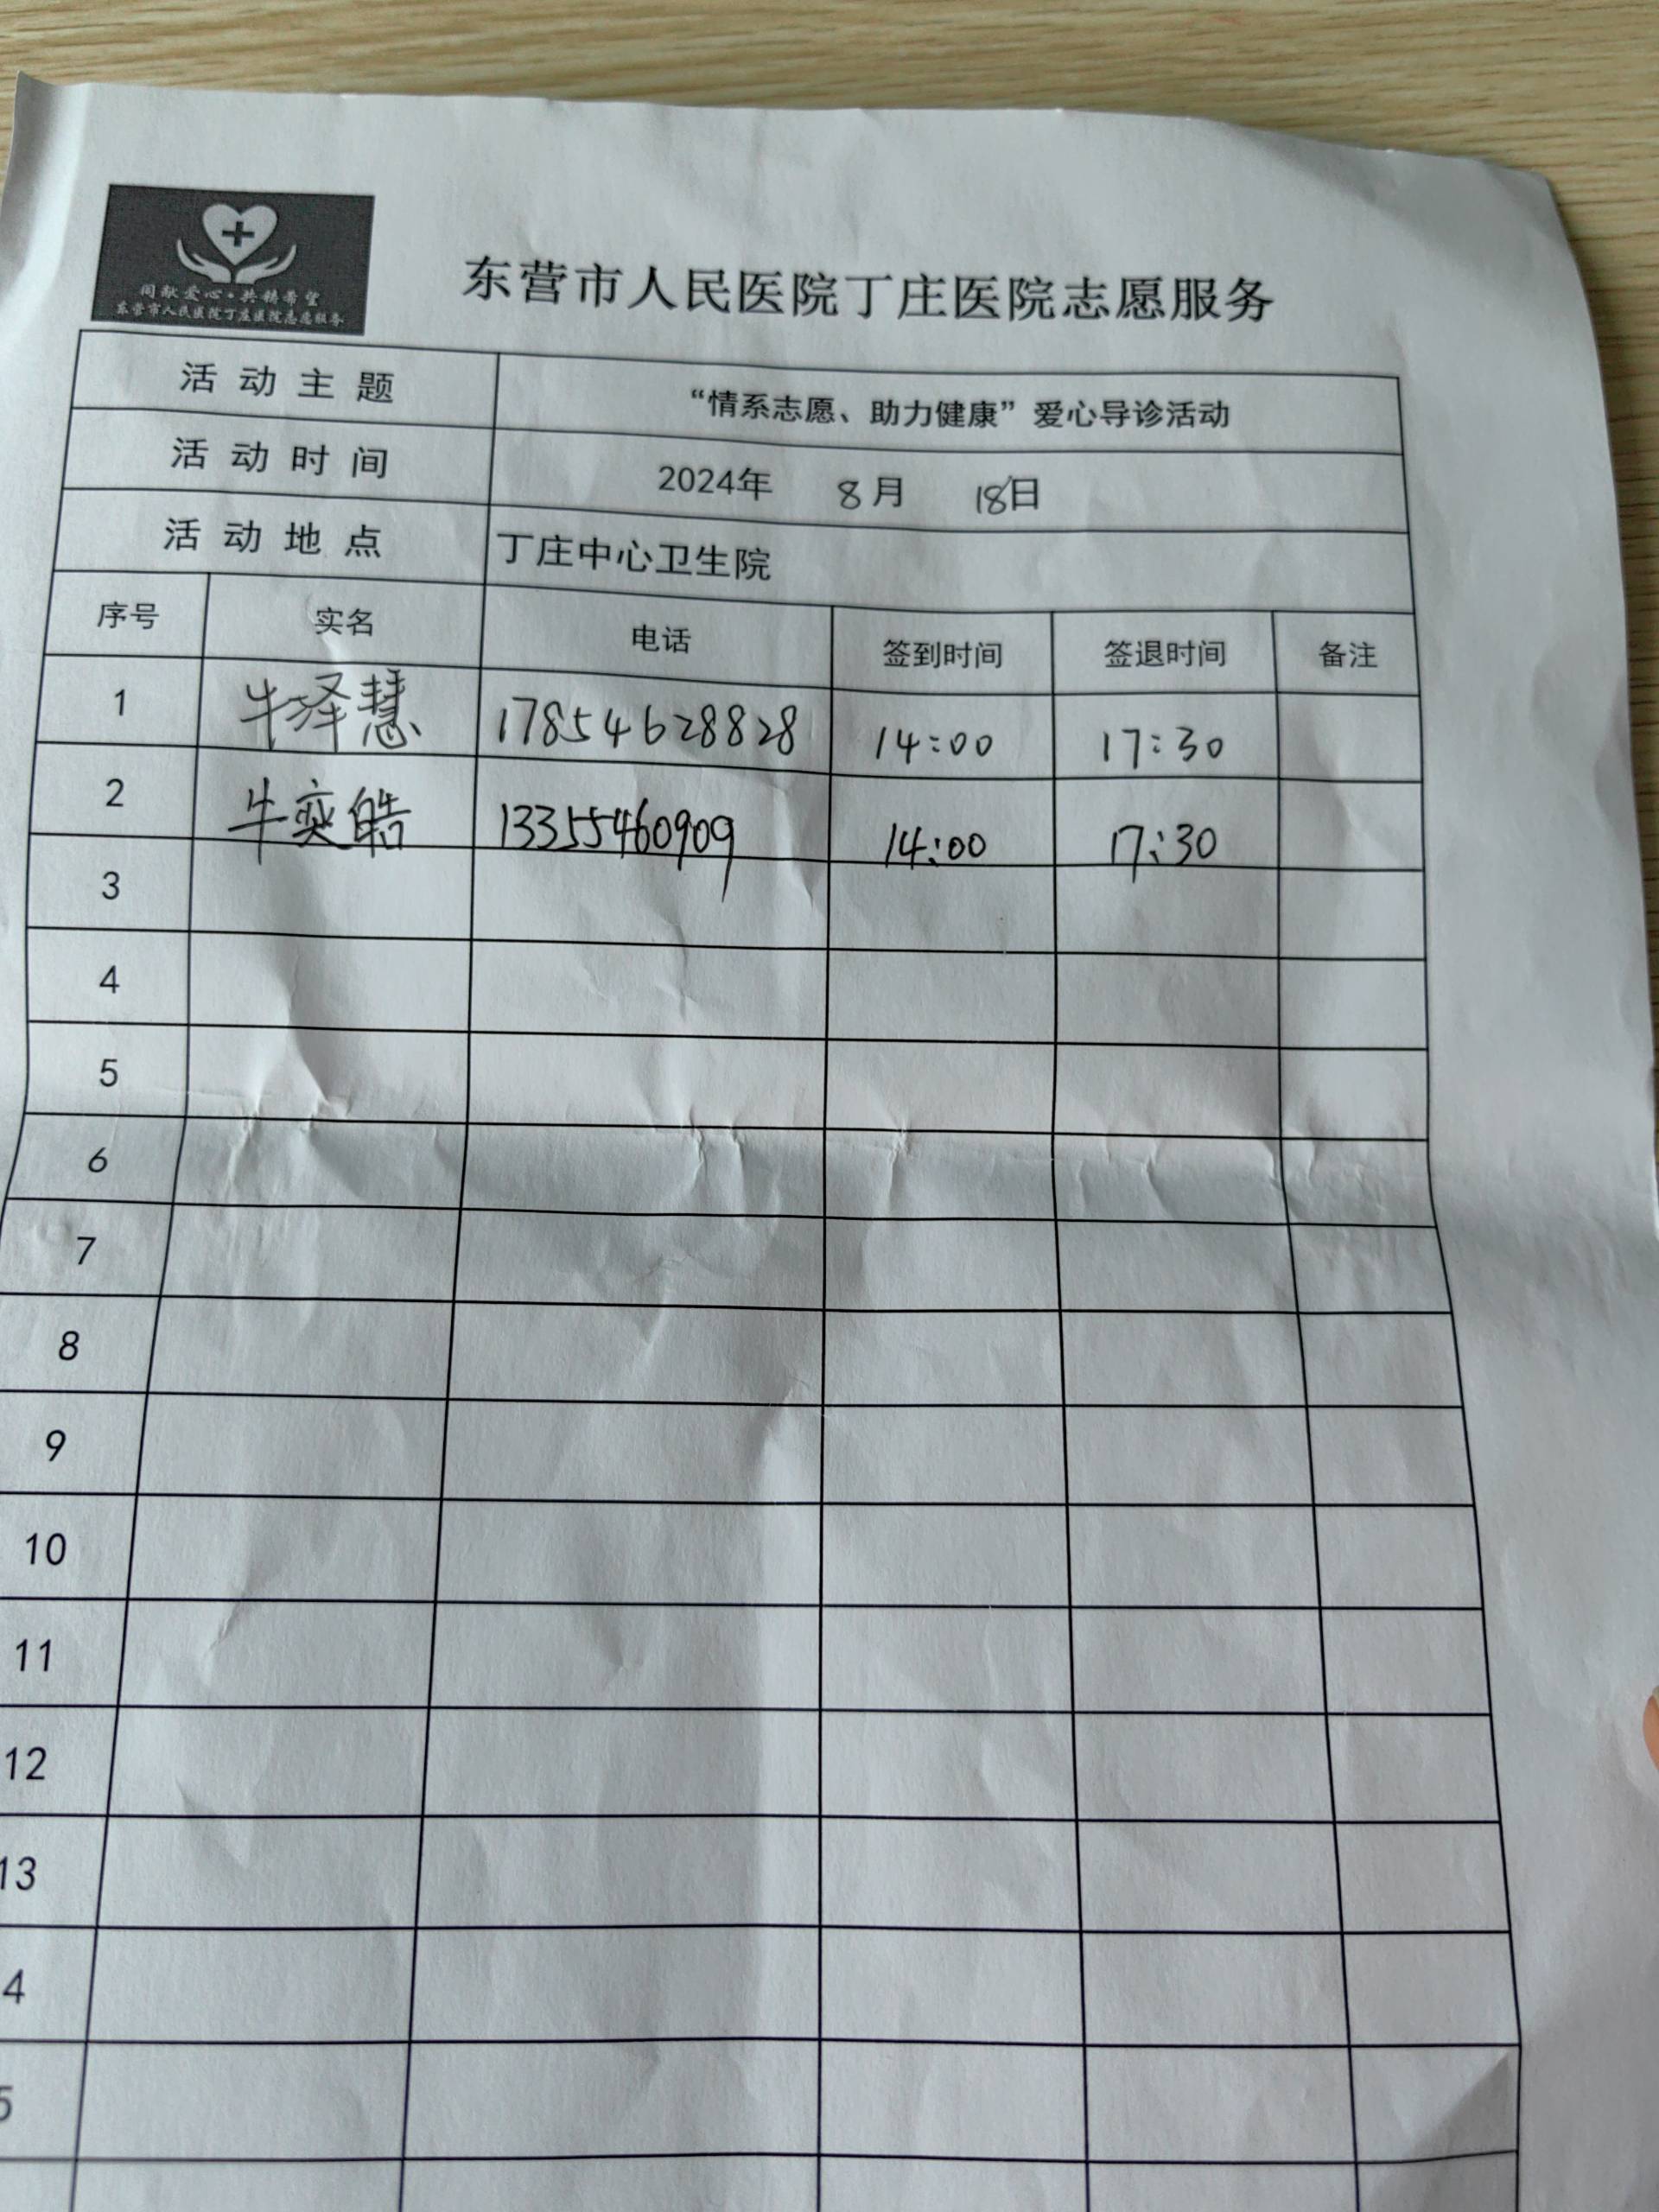 同献爱心·共铸希望
东营市人民医院丁庄医院志愿服务
东营市人民医院丁庄医院志愿服务
活动主题 “情系志愿、助力健康”爱心导诊活动
活动时间 2024年 8月 18日
活动地点 丁庄中心卫生院
序号 实名 电话 签到时间 签退时间 备注
1 牛泽慧 17854628828 14:00 17:30
2 牛奕皓 13355460909 14:00 17:30
3
4
5
6
7
8
9
10
11
12
13
4
5